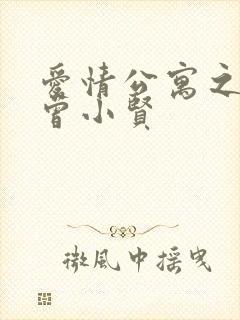 愛情公寓之
曾小賢
微風中搖曳